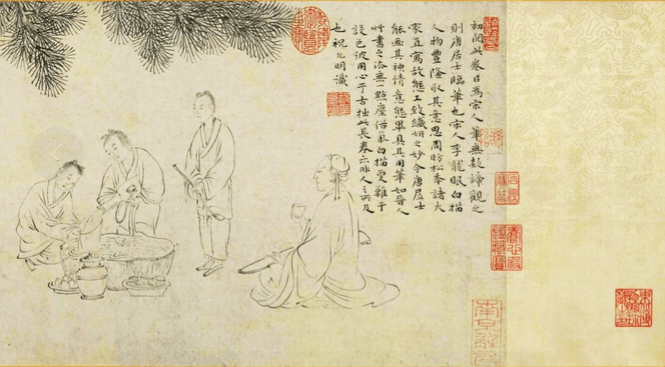 初閱此卷目為宋人筆無疑諦觀之
則唐居士臨筆也宋人李龍眠白描
人物豐隆收其意思周昉松年諸大
家並寫故態工致纖妍之妙今唐居士
能画其神情意態畢具其用筆如晉人
艸書之法無一點塵俗氣白描更難于
設色彼用心于古拙此長卷亦非人之所及
也祝允明識